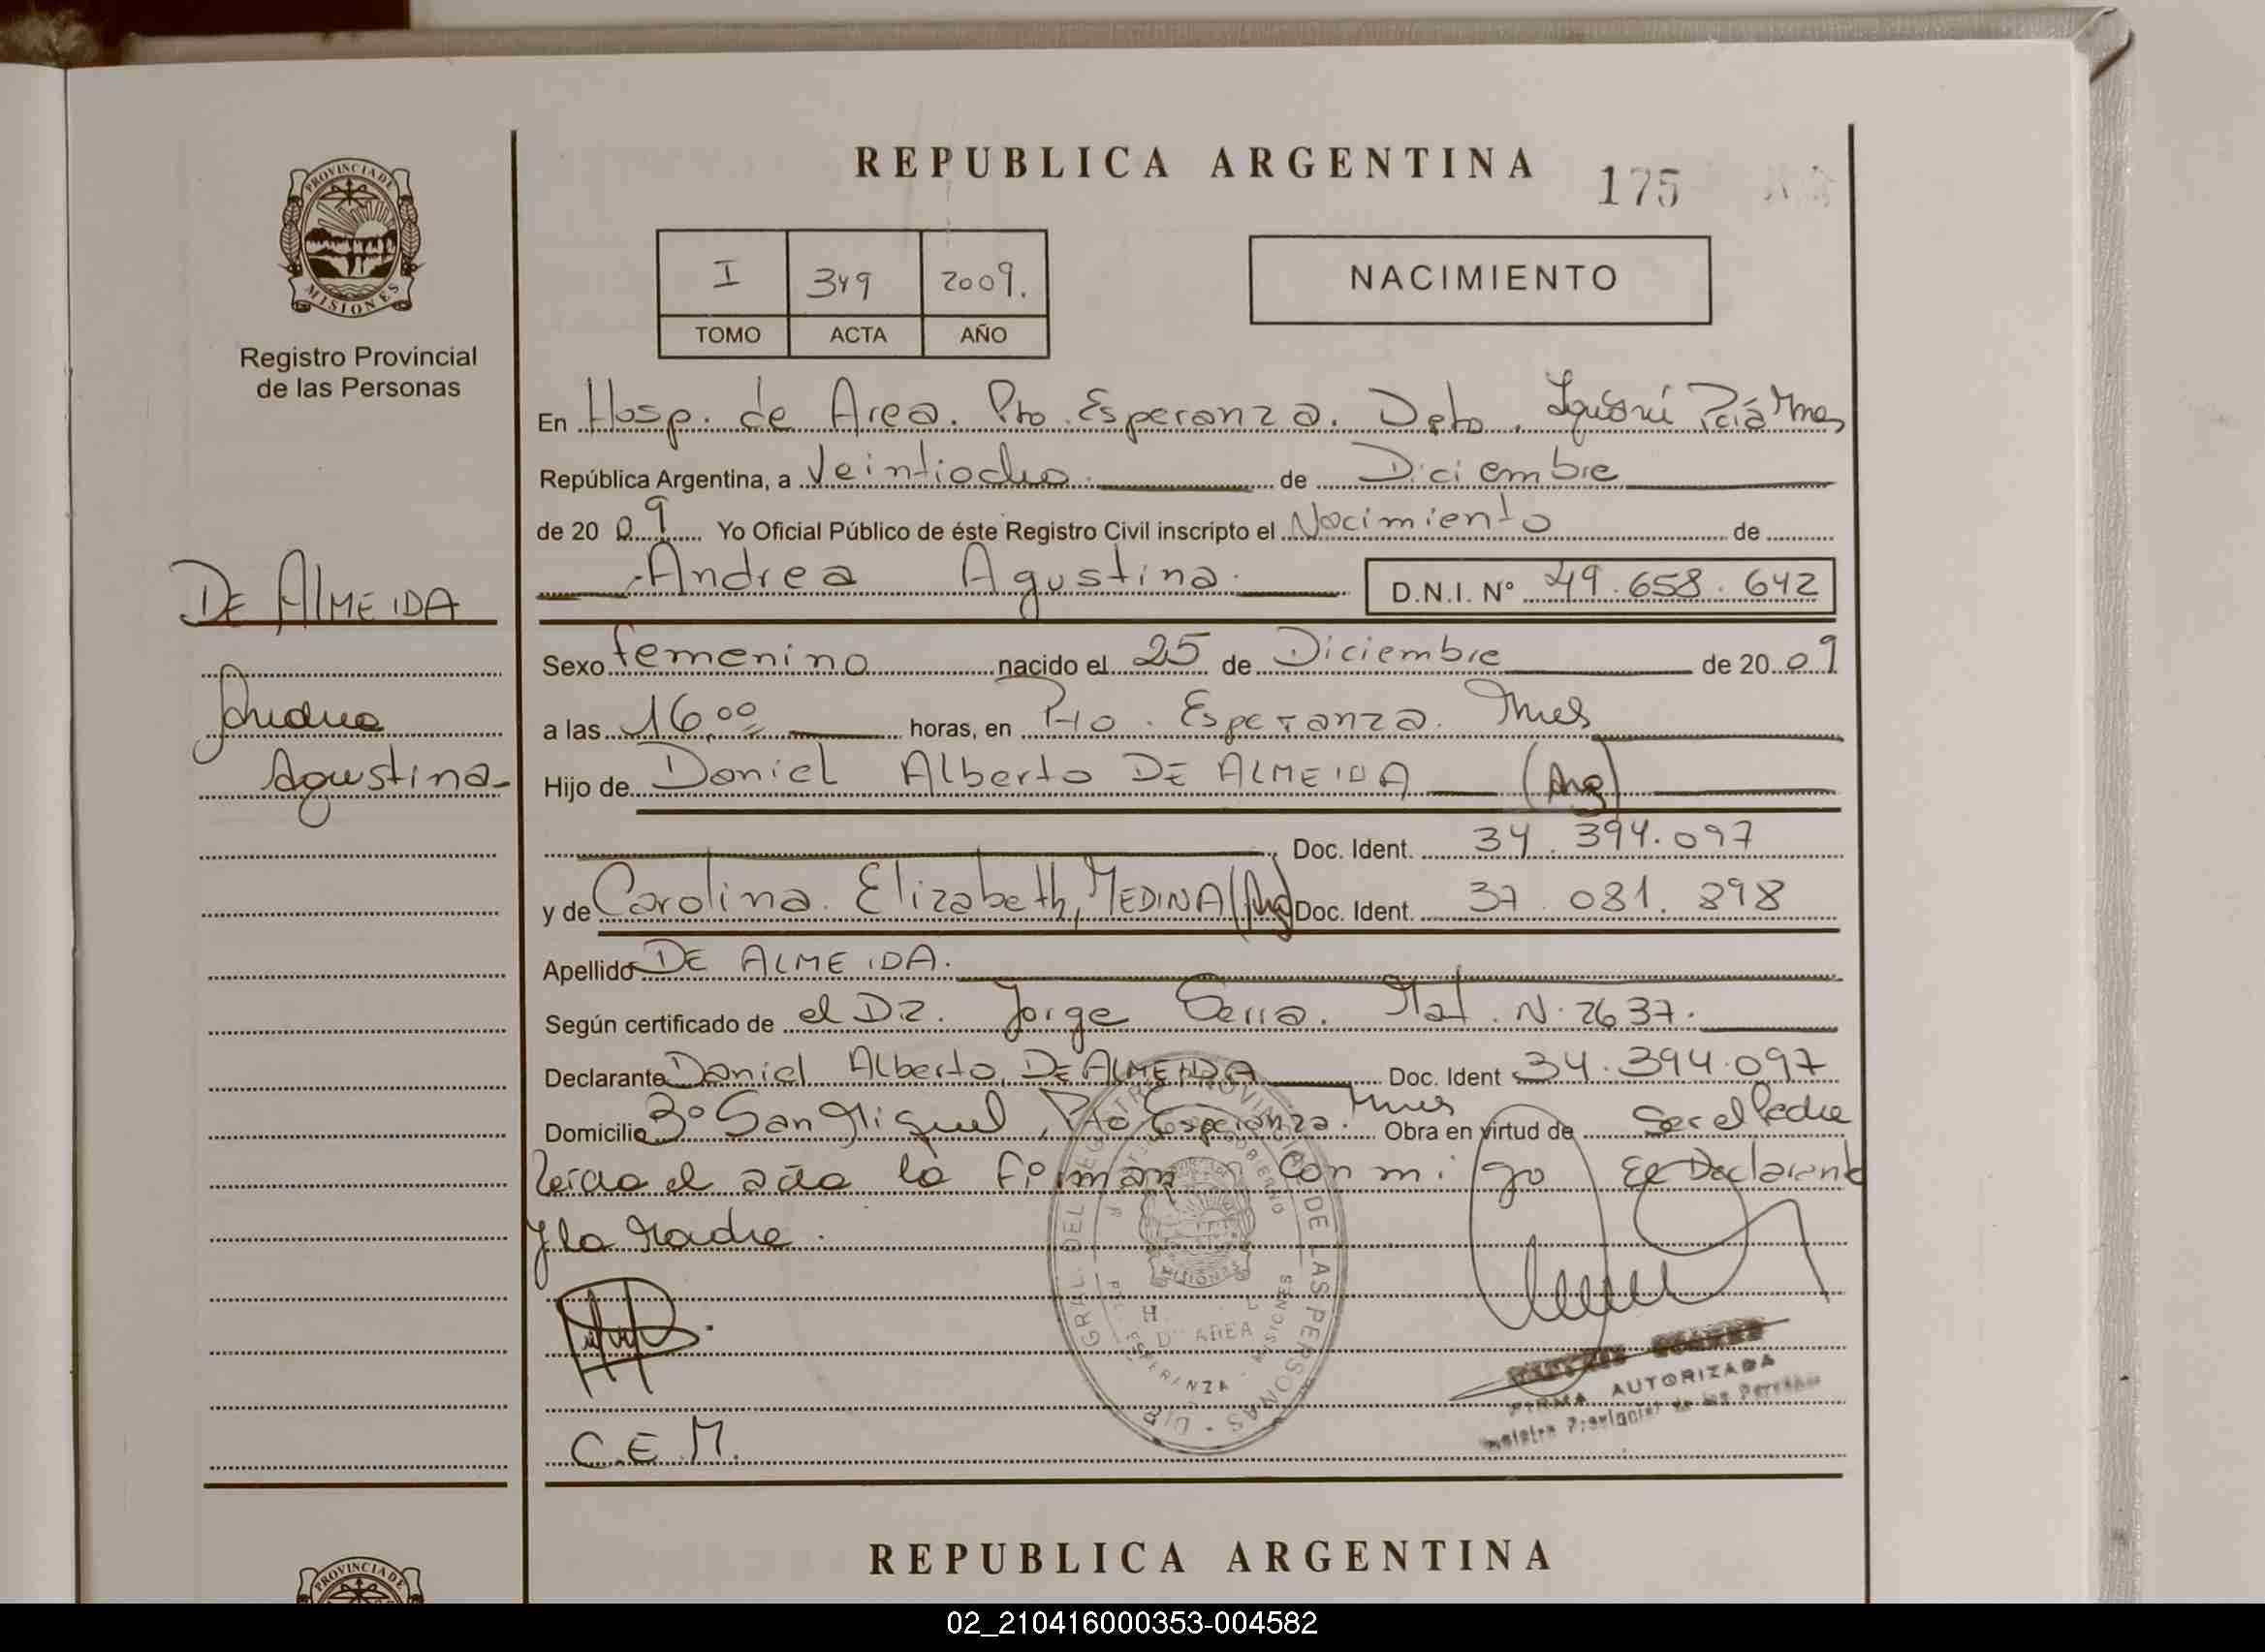 REPUBLICA ARGENTINA
175
PROVINCIA DE
MISIONES
Registro Provincial
de las Personas
I 349 2009.
TOMO ACTA AÑO
NACIMIENTO
En Hosp. de Area. Pto. Esperanza. Dpto. Iguazú Pciá Mnes
República Argentina, a Veintiocho de Diciembre
de 20 09 Yo Oficial Público de éste Registro Civil inscripto el Nacimiento de
Andrea Agustina. D.N.I. Nº 49.658.642
DE ALMEIDA
Andrea
Agustina-
Sexo femenino nacido el 25 de Diciembre de 20 09
a las 16,00 horas, en Pto. Esperanza. Mnes
Hijo de Daniel Alberto DE ALMEIDA (Arg)
Doc. Ident. 34.394.097
y de Carolina Elizabeth, MEDINA (Arg) Doc. Ident. 37.081.898
Apellido DE ALMEIDA.
Según certificado de el Dr. Jorge Serra. Mat. N. 2637.
Declarante Daniel Alberto, DE ALMEIDA Doc. Ident 34.394.097
Domicilio Bº San Miguel, Pto Esperanza. Mnes Obra en virtud de Ser el Padre
leído el acta la firman conmigo El Declarante
y la Madre.
GRAL. DEL REGISTRO PROVINCIAL DE LAS PERSONAS - DIR
GOBIERNO
MISIONES
H
D AREA
ESPERANZA - MISIONES
FIRMA AUTORIZADA
Registro Provincial de las Personas
C.E.M.
REPUBLICA ARGENTINA
PROVINCIA DE
02_210416000353-004582